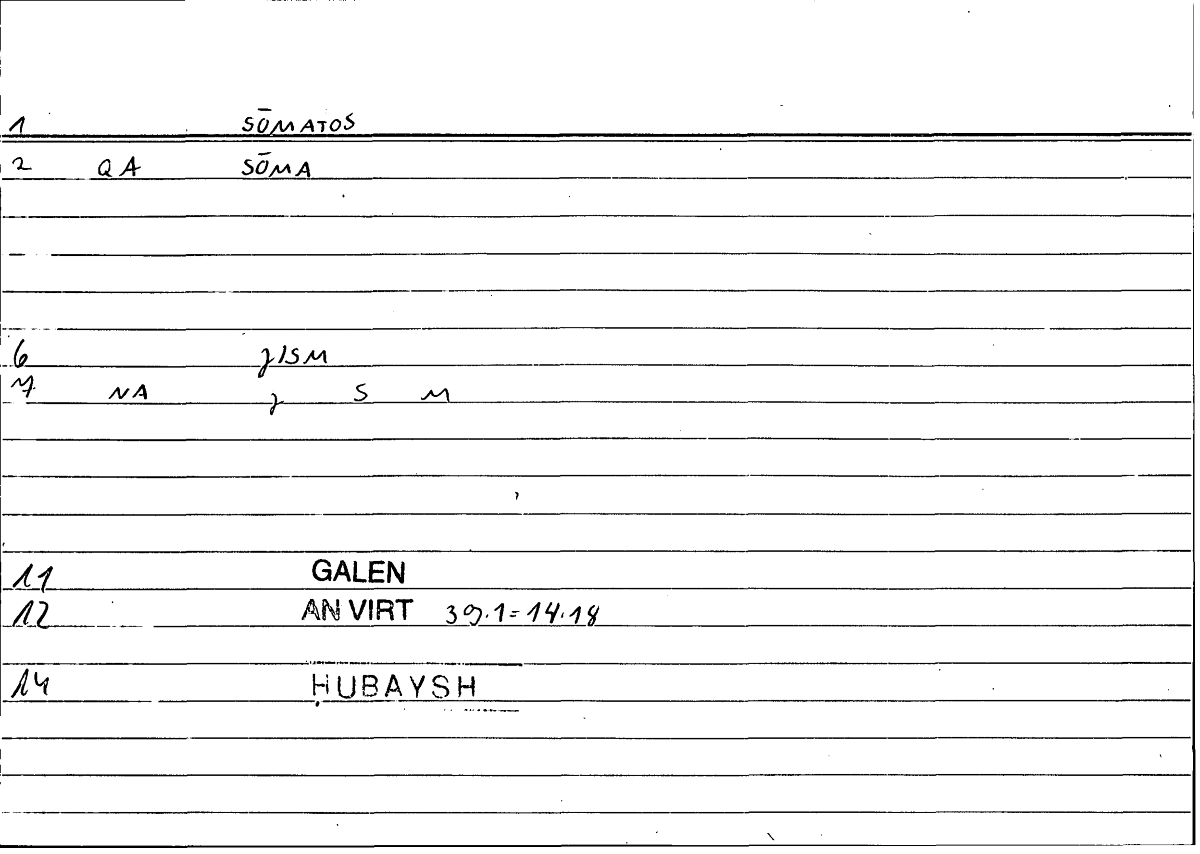 1 SŌMATOS
2 QA SŌMA
6 JISM
7 NA J S M
11 GALEN
12 AN VIRT 39.1=14.18
14 ḤUBAYSH